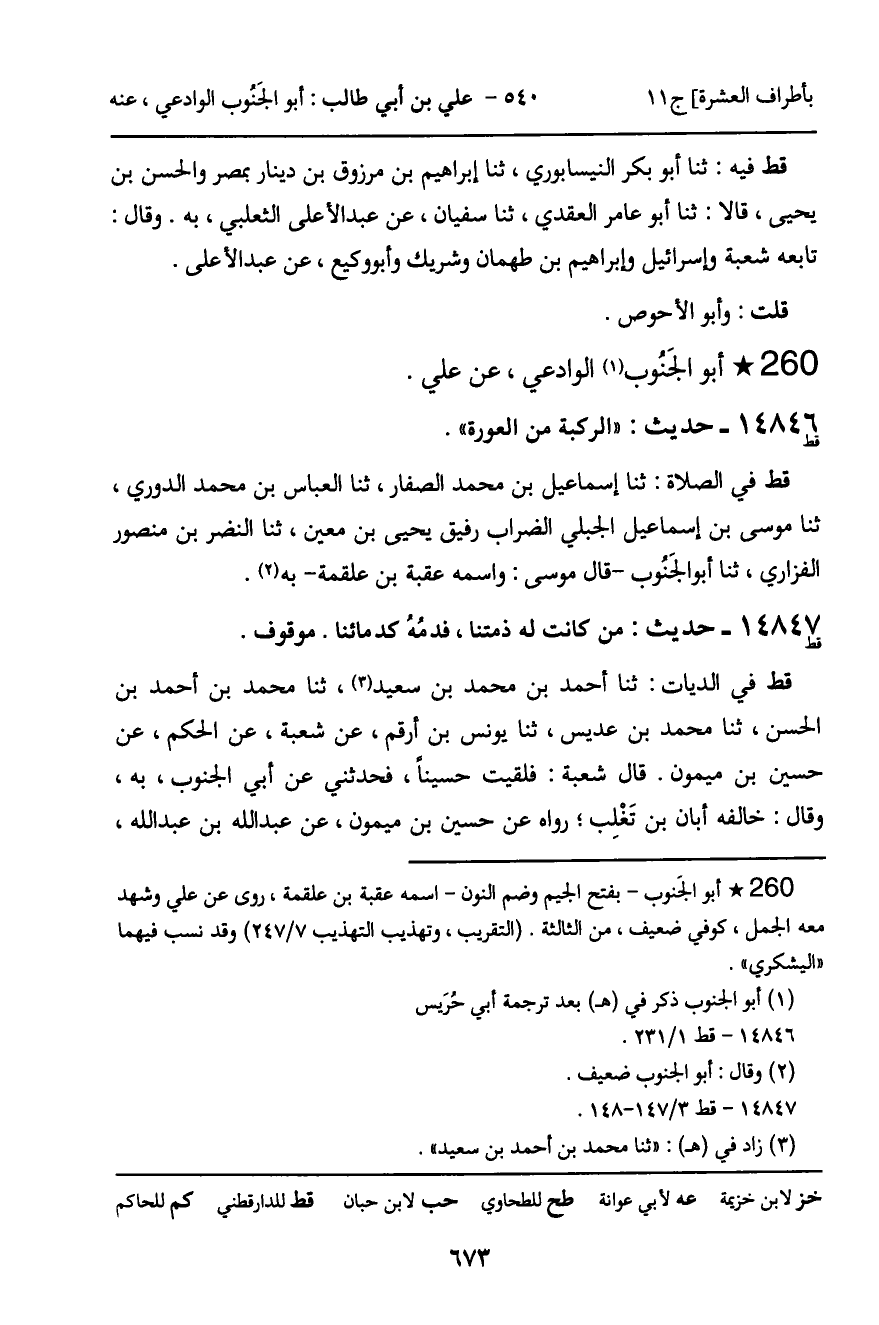 بأطراف العشرة] ج١١ ٥٤٠ - علي بن أبي طالب : أبو الجَنُوب الوادعي ، عنه
قط فيه : ثنا أبو بكر النيسابوري ، ثنا إبراهيم بن مرزوق بن دينار بمصر والحسن بن
يحيى ، قالا : ثنا أبو عامر العقدي ، ثنا سفيان ، عن عبدالأعلى الثعلبي ، به . وقال :
تابعه شعبة وإسرائيل وإبراهيم بن طهمان وشريك وأبووكيع ، عن عبدالأعلى .
قلت : وأبو الأحوص .
260 ★ أبو الجَنُوب(١) الوادعي ، عن علي .
١٤٨٤٦ ـ حديث : «الركبة من العورة» .
قط
قط في الصلاة : ثنا إسماعيل بن محمد الصفار ، ثنا العباس بن محمد الدوري ،
ثنا موسى بن إسماعيل الجبلي الضراب رفيق يحيى بن معين ، ثنا النضر بن منصور
الفزاري ، ثنا أبوالجَنُوب -قال موسى : واسمه عقبة بن علقمة- به(٢) .
١٤٨٤٧ ـ حديث : من كانت له ذمتنا ، فدمُهُ كدمائنا . موقوف .
قط
قط في الديات : ثنا أحمد بن محمد بن سعيد(٣) ، ثنا محمد بن أحمد بن
الحسن ، ثنا محمد بن عديس ، ثنا يونس بن أرقم ، عن شعبة ، عن الحكم ، عن
حسين بن ميمون . قال شعبة : فلقيت حسيناً ، فحدثني عن أبي الجنوب ، به ،
وقال : خالفه أبان بن تَغْلِب ؛ رواه عن حسين بن ميمون ، عن عبدالله بن عبدالله ،
260 ★ أبو الجَنوب - بفتح الجيم وضم النون - اسمه عقبة بن علقمة ، روى عن علي وشهد
معه الجمل ، كوفي ضعيف ، من الثالثة . (التقريب ، وتهذيب التهذيب ٢٤٧/٧) وقد نسب فيهما
«اليشكري» .
(١) أبو الجنوب ذكر في (هـ) بعد ترجمة أبي حُرَيس
١٤٨٤٦ - قط ٢٣١/١ .
(٢) وقال : أبو الجنوب ضعيف .
١٤٨٤٧ - قط ١٤٧/٣-١٤٨ .
(٣) زاد في (هـ) : «ثنا محمد بن أحمد بن سعيد» .
خز لابن خزيمة عه لأبي عوانة طح للطحاوي حب لابن حبان قط للدارقطني كم للحاكم
٦٧٣